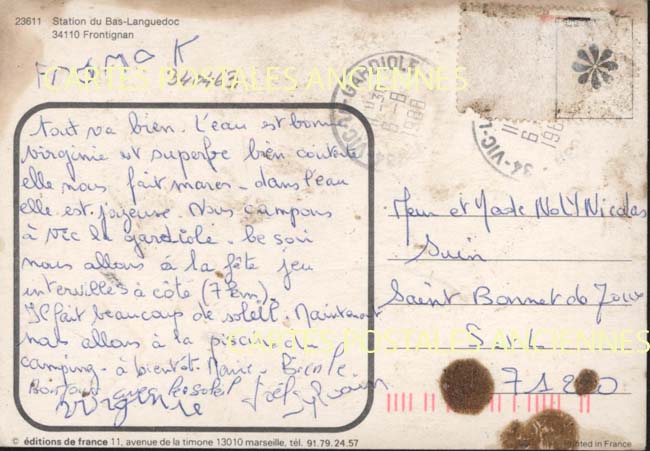 23611 Station du Bas-Languedoc
34110 Frontignan
CARTES POSTALES ANCIENNES
34-VIC-LA-GARDIOLE
6-8
1988
tout va bien. L'eau est bonne
Virginie est superbe bien contente
elle nous fait marer - dans l'eau
elle est joyeuse. Nous campons
à Vic la gardiole. ce soir
nous allons à la fête jeu
intervilles à côté (7 km).
Il fait beaucoup de soleil. Maintenant
nous allons à la piscine du
camping - à bientôt. Marie.
avec le soleil Sylvain
Virginie
Meur et Made Noly Nicolas
Suin
Saint Bonnet de Joux
S.&L
CARTES POSTALES ANCIENNES
© éditions de france 11, avenue de la timone 13010 marseille, tél. 91.79.24.57
Printed in France